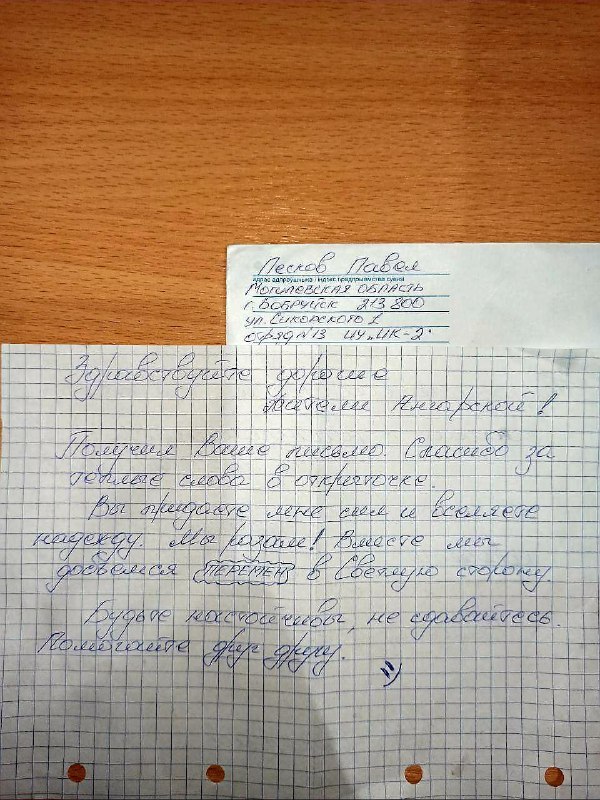 Песков Павел
адрас адпраўшчыка / індэкс прадпрыемства сувязі
Могилевская область
г. Бобруйск 213800
ул. Сикорского 1
отряд №13 ИУ "ИК-2"
Здравствуйте дорогие
жители Ангарской!
Получил Ваше письмо. Спасибо за
тёплые слова в открыточке.
Вы придаёте мне сил и вселяете
надежду. Мы разам! Вместе мы
добъемся ПЕРЕМЕН в Светлую сторону.
Будьте настойчивы, не сдавайтесь.
Помогайте друг другу.